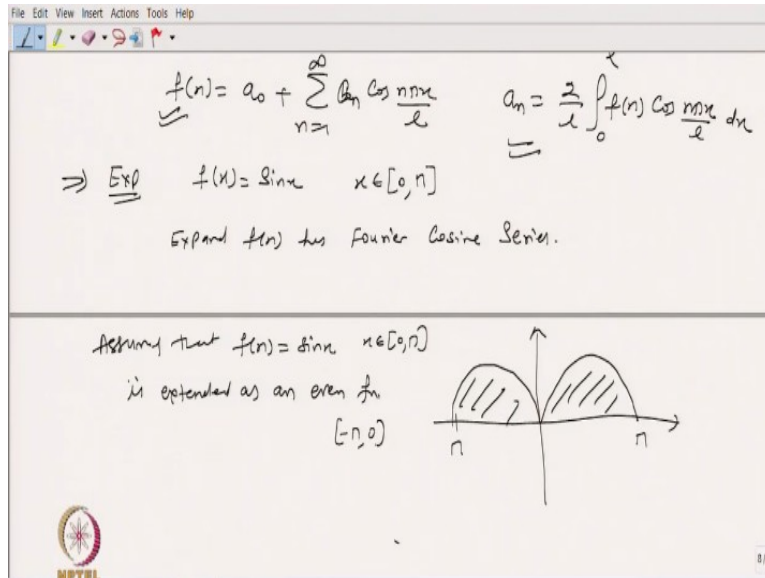 File Edit View Insert Actions Tools Help
f(x) = a₀ + ∑_{n=1}^{∞} aₙ Cos nπx/l    aₙ = 2/l ∫₀^l f(x) Cos nπx/l dx
⇒ Exp f(x) = Sinx x ∈ [0, π]
Expand f(x) as Fourier Cosine Series.
Assume that f(x) = Sinx x ∈ [0, π]
is extended as an even fn.
[-π, 0)
π π
NPTEL
8/